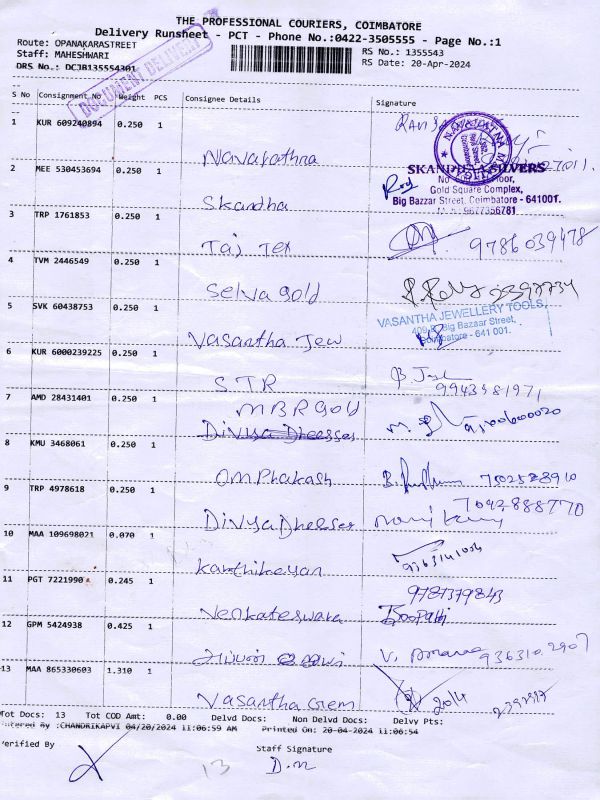 THE PROFESSIONAL COURIERS, COIMBATORE
Delivery Runsheet - PCT - Phone No.:0422-3505555 - Page No.:1
Route: OPANAKARASTREET
Staff: MAHESHWARI
DRS No.: DCJB135554301
RS No.: 1355543
RS Date: 20-Apr-2024
DOCUMENT DELIVERY
S No Consignment No Weight PCS Consignee Details Signature
1 KUR 609240894 0.250 1 Navarathna
2 MEE 530453694 0.250 1 Skandha
SKANDHA SILVERS
Gold Square Complex,
Big Bazzar Street, Coimbatore - 641001.
3 TRP 1761853 0.250 1 Taj Tex 9786039478
4 TVM 2446549 0.250 1 Selva gold
5 SVK 60438753 0.250 1 Vasantha Jew
VASANTHA JEWELLERY TOOLS,
Big Bazaar Street,
Coimbatore - 641 001.
6 KUR 6000239225 0.250 1 S.T.R
9943981971
7 AMD 28431401 0.250 1 MBR gold
Divya Dhesses
8 KMU 3468061 0.250 1 Om Phakash
9 TRP 4978618 0.250 1 Divya Dhesses 7092888770
10 MAA 109698021 0.070 1 Karthikeyan
11 PGT 7221990 0.245 1 Venkateswara 9787379843
12 GPM 5424938 0.425 1
9363102907
13 MAA 865330603 1.310 1 Vasantha Gem 20/4
Tot Docs: 13 Tot COD Amt: 0.00 Delvd Docs: Non Delvd Docs: Delvy Pts:
Entered By :CHANDRIKAPVI 04/20/2024 11:06:59 AM Printed On: 20-04-2024 11:06:54
Verified By
Staff Signature
13
D.M